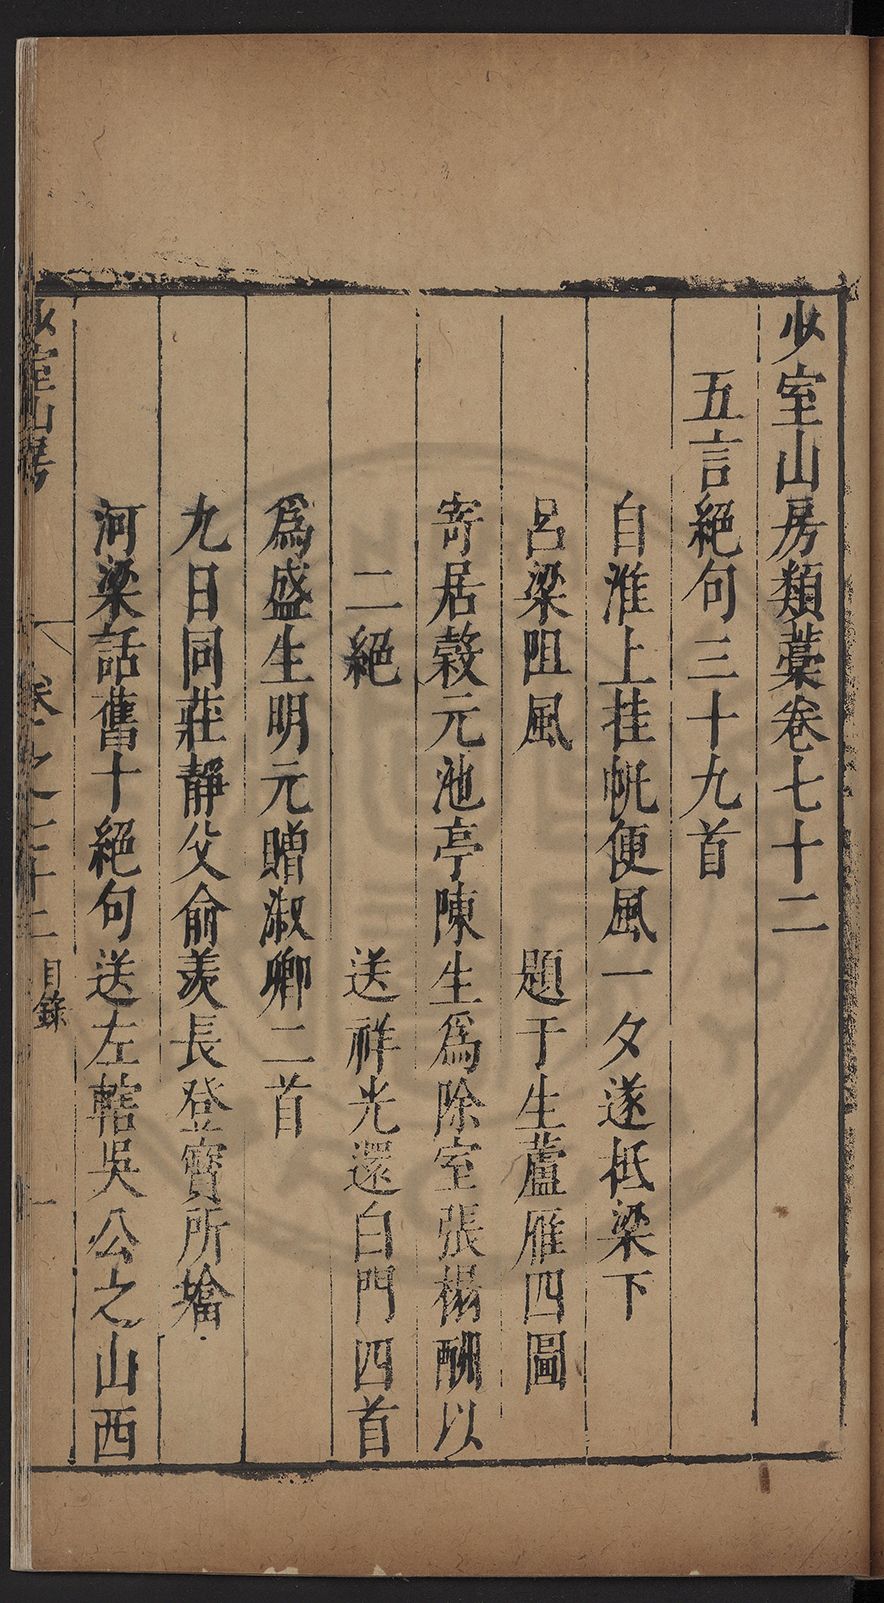 少室山房類藁卷七十二
五言絕句三十九首
自淮上挂帆便風一夕遂抵梁下
呂梁阻風　題于生蘆雁四圖
寄居穀元池亭陳生爲除室張榻酬以
二絕　送祥光還白門四首
爲盛生明元贈淑卿二首
九日同莊靜父俞羨長登寶所㙮
河梁話舊十絕句送左轄吳公之山西
少室山房
卷之七十二
目錄
一